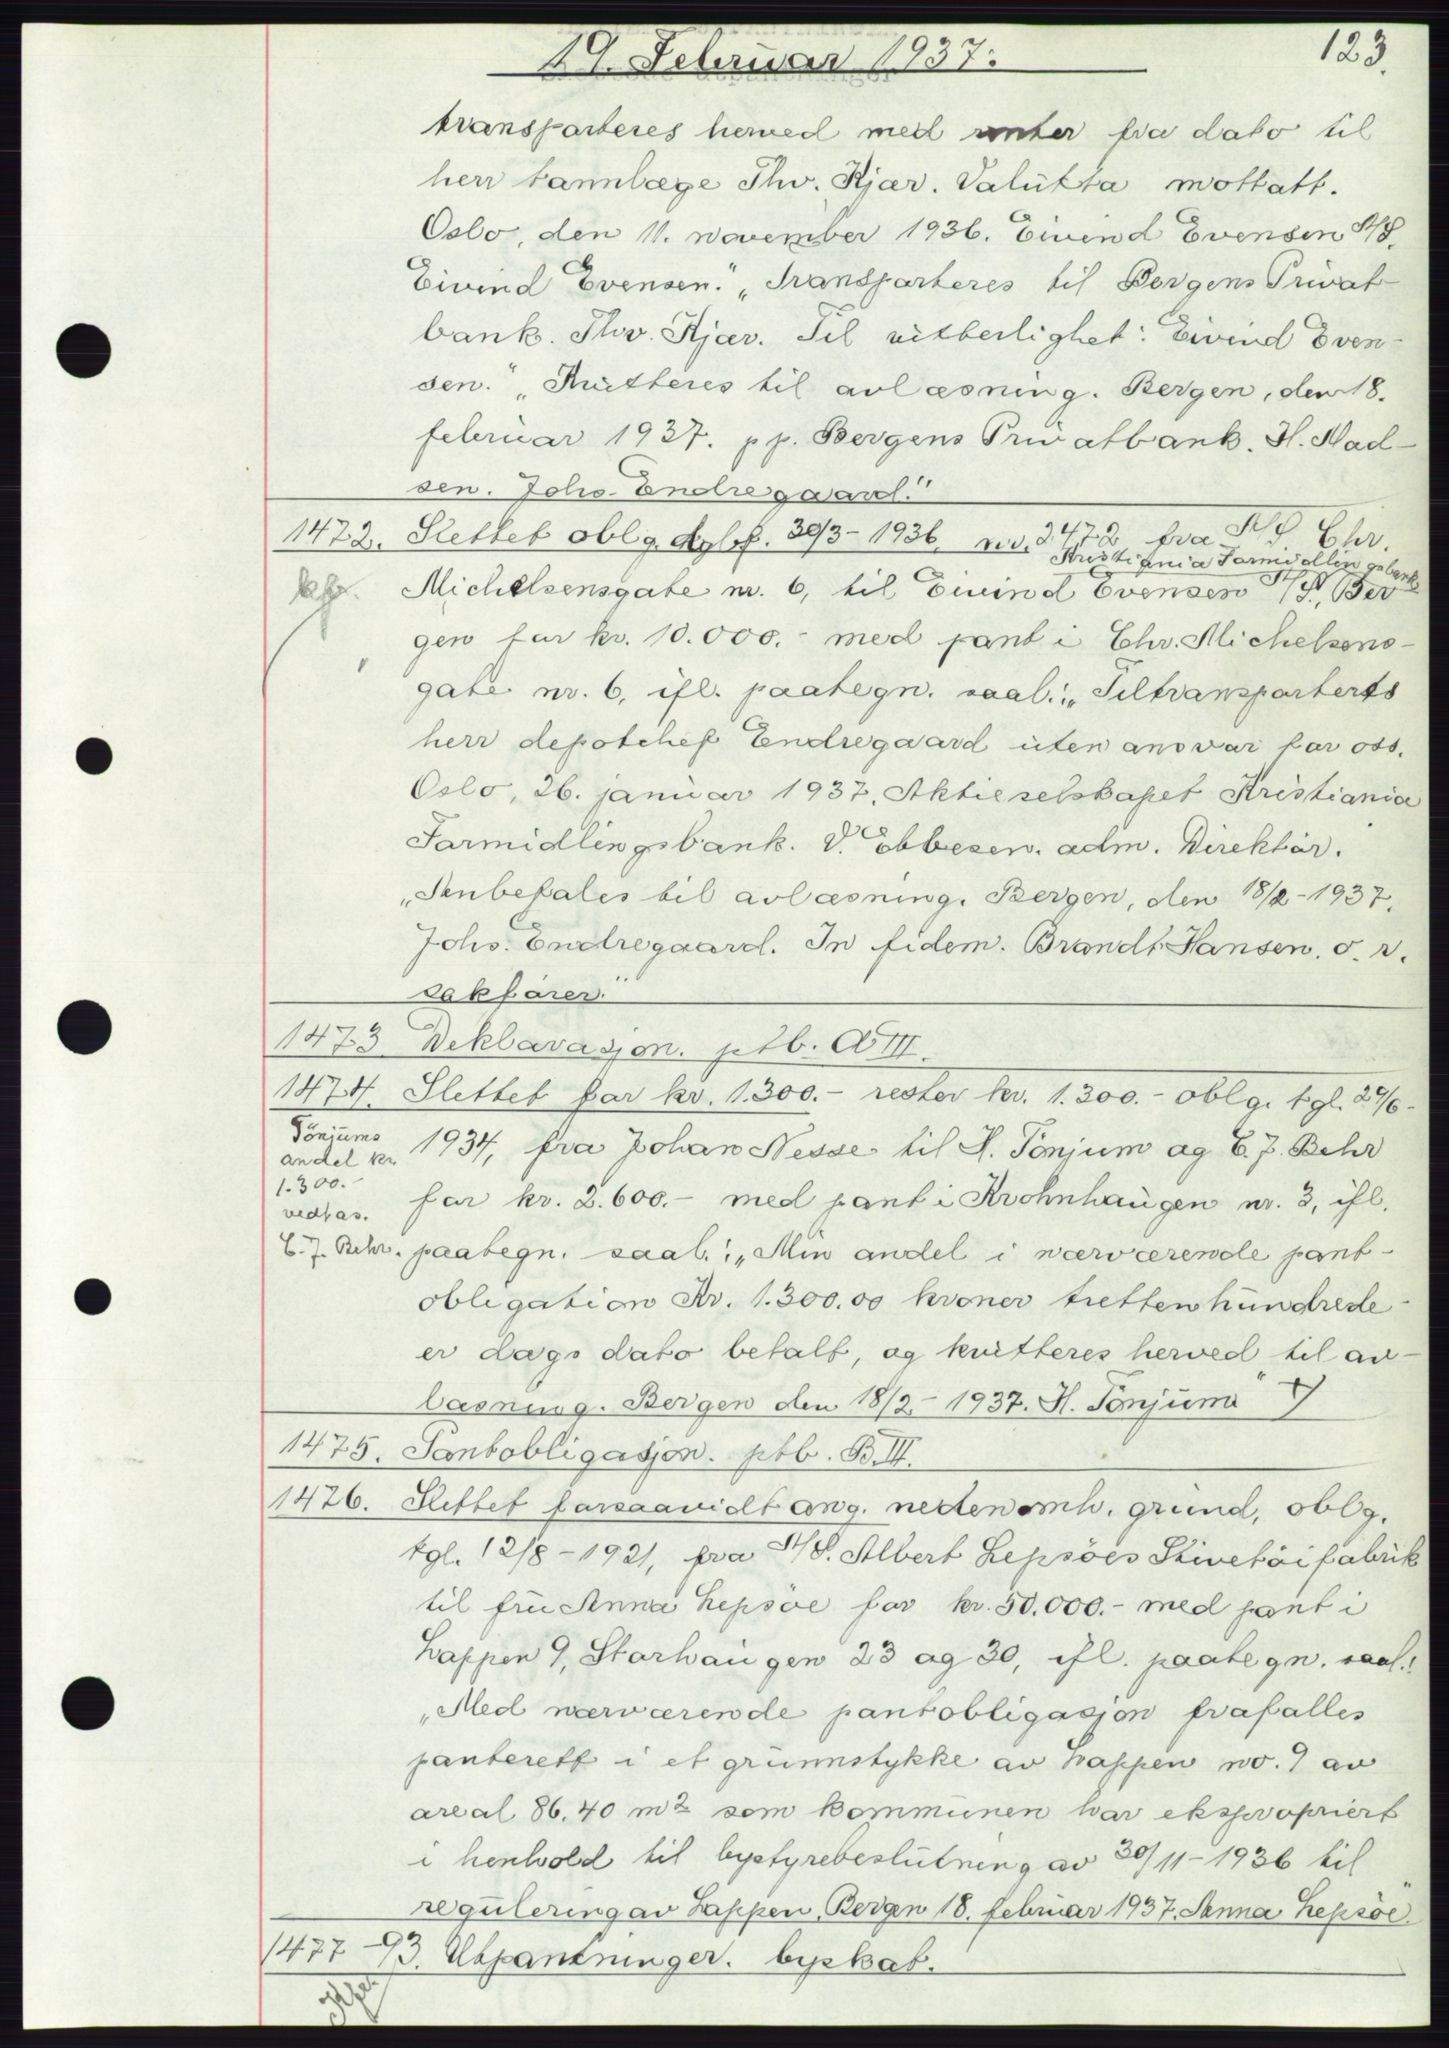 19. Februar 1937:
123.
transporteres herved med renter fra dato til
herr tannlæge Thv. Kjær. Valutta mottatt.
Oslo, den 11. november 1936. Eivind Evensen A/S.
Eivind Evensen." „Transporteres til Bergens Privat-
bank. Thv. Kjær. Til vitterlighet: Eivind Even-
sen." „Kvitteres til avlæsning. Bergen, den 18.
februar 1937. pp. Bergens Privatbank. H. Mad-
sen. Johs. Endregaard."
1472. Slettet oblg. dglbf. 30/3-1936, nr. 2472 fra A/S Chr.
Kristiania Formidlingsbank
kfr. Michelsensgate nr. 6, til Eivind Evensen A/S, Ber
gen for kr. 10.000.- med pant i Chr. Michelsens-
gate nr. 6, ifl. paategn. saal.: „Tiltransporterts
herr depotchef Endregaard uten ansvar for oss.
Oslo, 26. januar 1937. Aktieselskapet Kristiania
Formidlingsbank. V. Ebbesen. adm. Direktör.
„Anbefales til avlæsning. Bergen, den 18/2-1937.
Johs. Endregaard. In fidem. Brandt Hansen. o. r.
sakförer."
1473 Deklarasjon. ptb. A III.
1474. Slettet for kr. 1.300.- rester kr. 1.300.- oblg. tgl. 29/6-
Tönjums
andel kr.
1.300.-
vedtas.
E. J. Behr.
1934, fra Johan Nesse til H. Tönjum og E. J. Behr
for kr. 2.600.- med pant i Krohnhaugen nr. 3, ifl.
paategn. saal.: „Min andel i nærværende pant-
obligation Kr. 1.300.00 kroner trettenhundrede-
er dags dato betalt, og kvitteres herved til av-
læsning. Bergen den 18/2-1937. H. Tönjum"
1475. Pantobligasjon. ptb. B. III.
1476. Slettet forsaavidt ang. nedenomh. grund, oblg.
tgl. 12/8-1921, fra A/S. Albert Lepsöes Stivetöifabrik
til fru Anna Lepsöe for kr. 50.000.- med pant i
Lappen 9, Storhaugen 23 og 30, ifl. paategn. saal.:
„Med nærværende pantobligasjon frafalles
panterett i et grunnstykke av Lappen no. 9 av
areal 86.40 m2 som kommunen har ekspropriert
i henhold til bystyrebeslutning av 30/11-1936 til
regulering av Lappen. Bergen 18. februar 1937. Anna Lepsöe."
1477-93. Utpantninger. byskat.
Kfr.